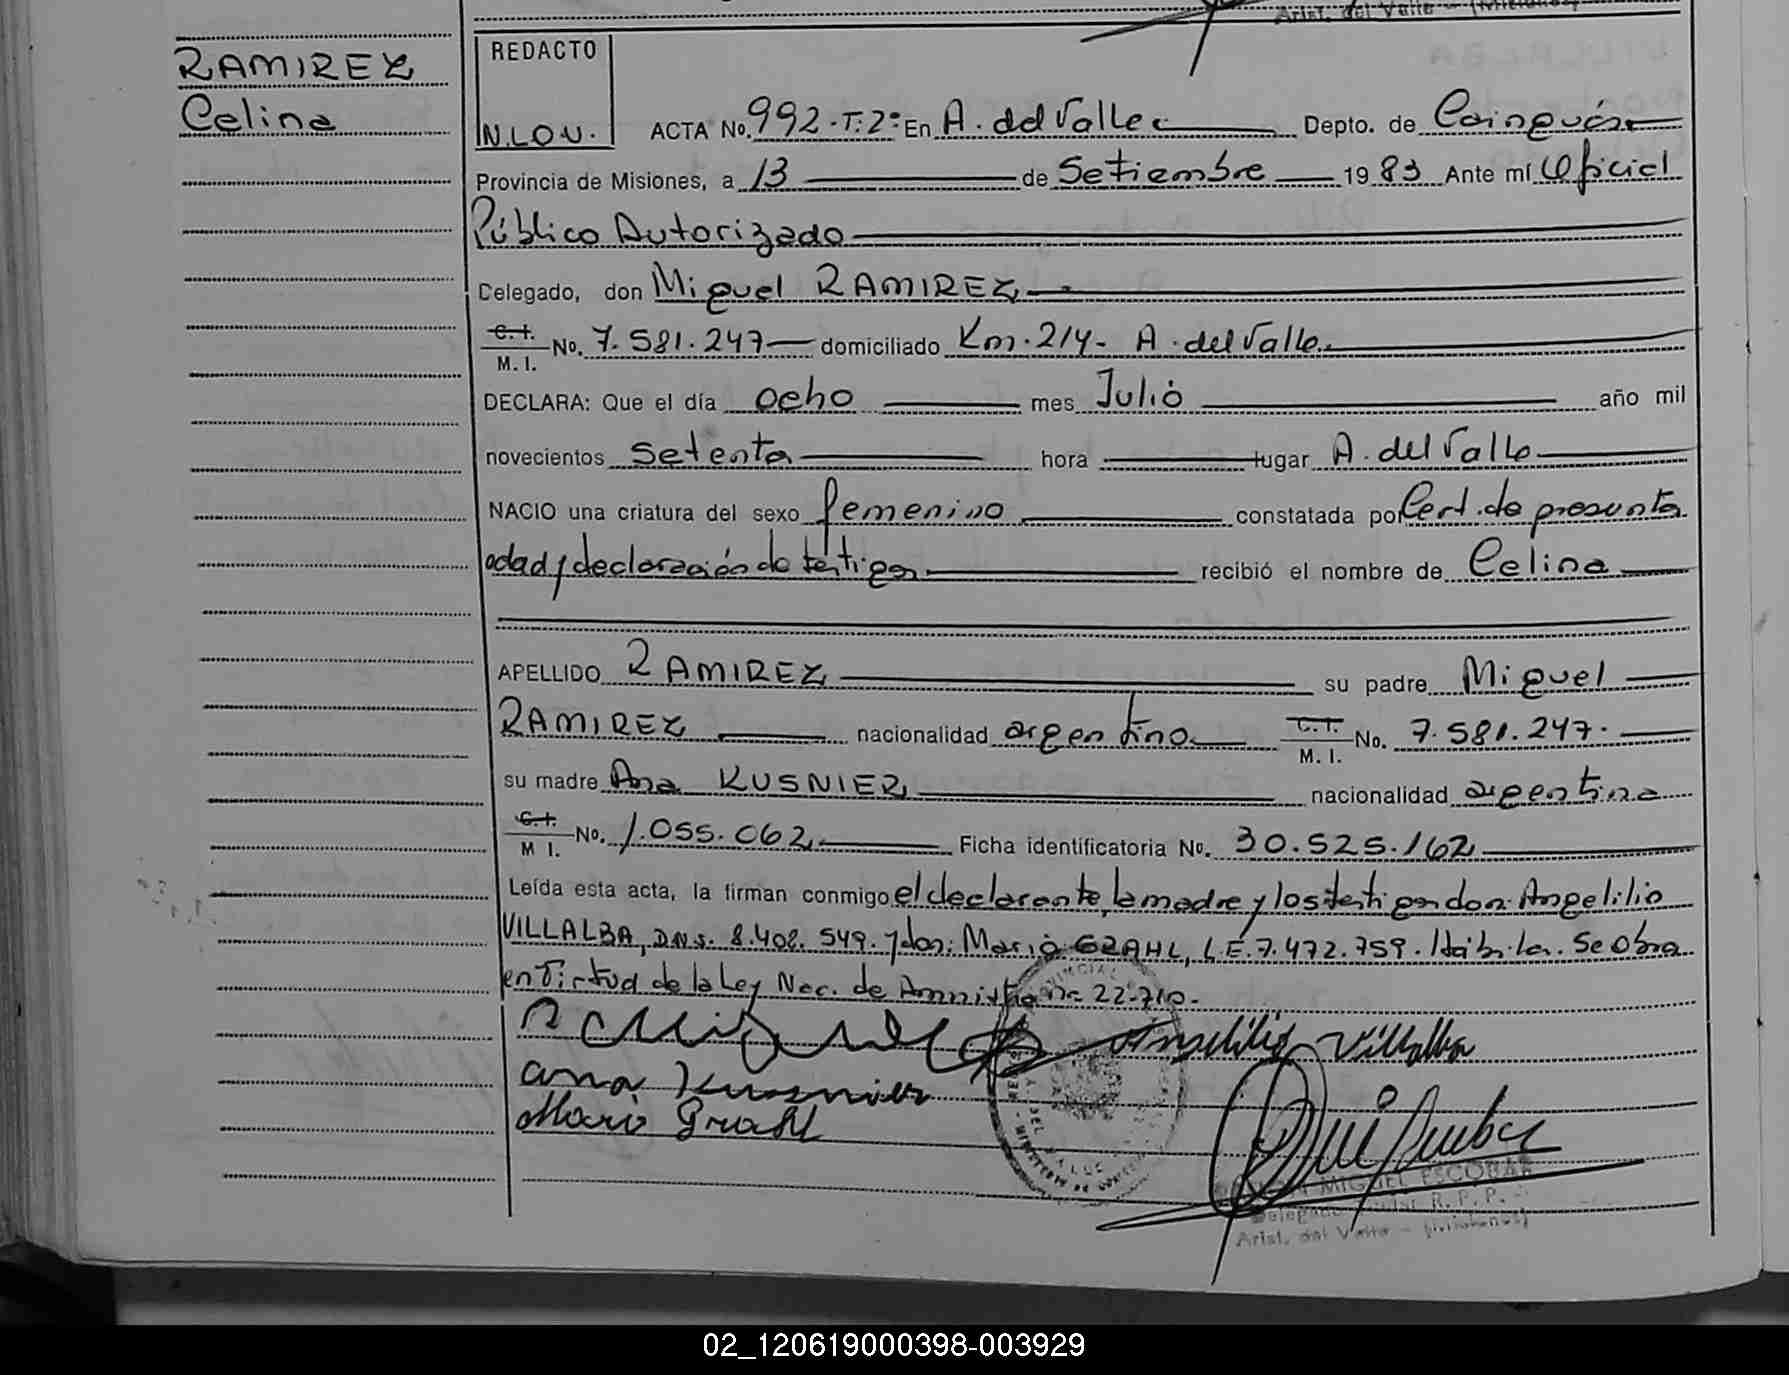 Arist. del Valle - (Misiones)
RAMIREZ
Celina
REDACTO
N.L.O.U.
ACTA No. 992-T:2º En A. del Valle Depto. de Cainguás
Provincia de Misiones, a 13 de Setiembre 1983 Ante mí Oficial
Público Autorizado
Delegado, don Miguel RAMIREZ
C.I. M.I. No. 7.581.247 domiciliado Km. 214- A. del Valle.
DECLARA: Que el día ocho mes Julio año mil
novecientos setenta hora lugar A. del Valle
NACIO una criatura del sexo femenino constatada por Cert. de presunta
edad y declaración de testigos recibió el nombre de Celina
APELLIDO RAMIREZ su padre Miguel
RAMIREZ nacionalidad argentino C.I. M.I. No. 7.581.247.
su madre Ana KUSNIER nacionalidad argentina
C.I. M I. No. 1.055.062 Ficha identificatoria No. 30.525.162
Leída esta acta, la firman conmigo el declarante, la madre y los testigos don: Angelilio
VILLALBA, D.N.I. 8.408.549. y don: Mario GRAHL, L.E. 7.472.759. Hábiles. Se obra
en Virtud de la Ley Nac. de Amnistía nº 22.710.
Angelilio Villalba
Ana Kusnier
Mario Grahl
MIGUEL ESCOBAR
R.P.P.
Arist. del Valle - (Misiones)
02_120619000398-003929